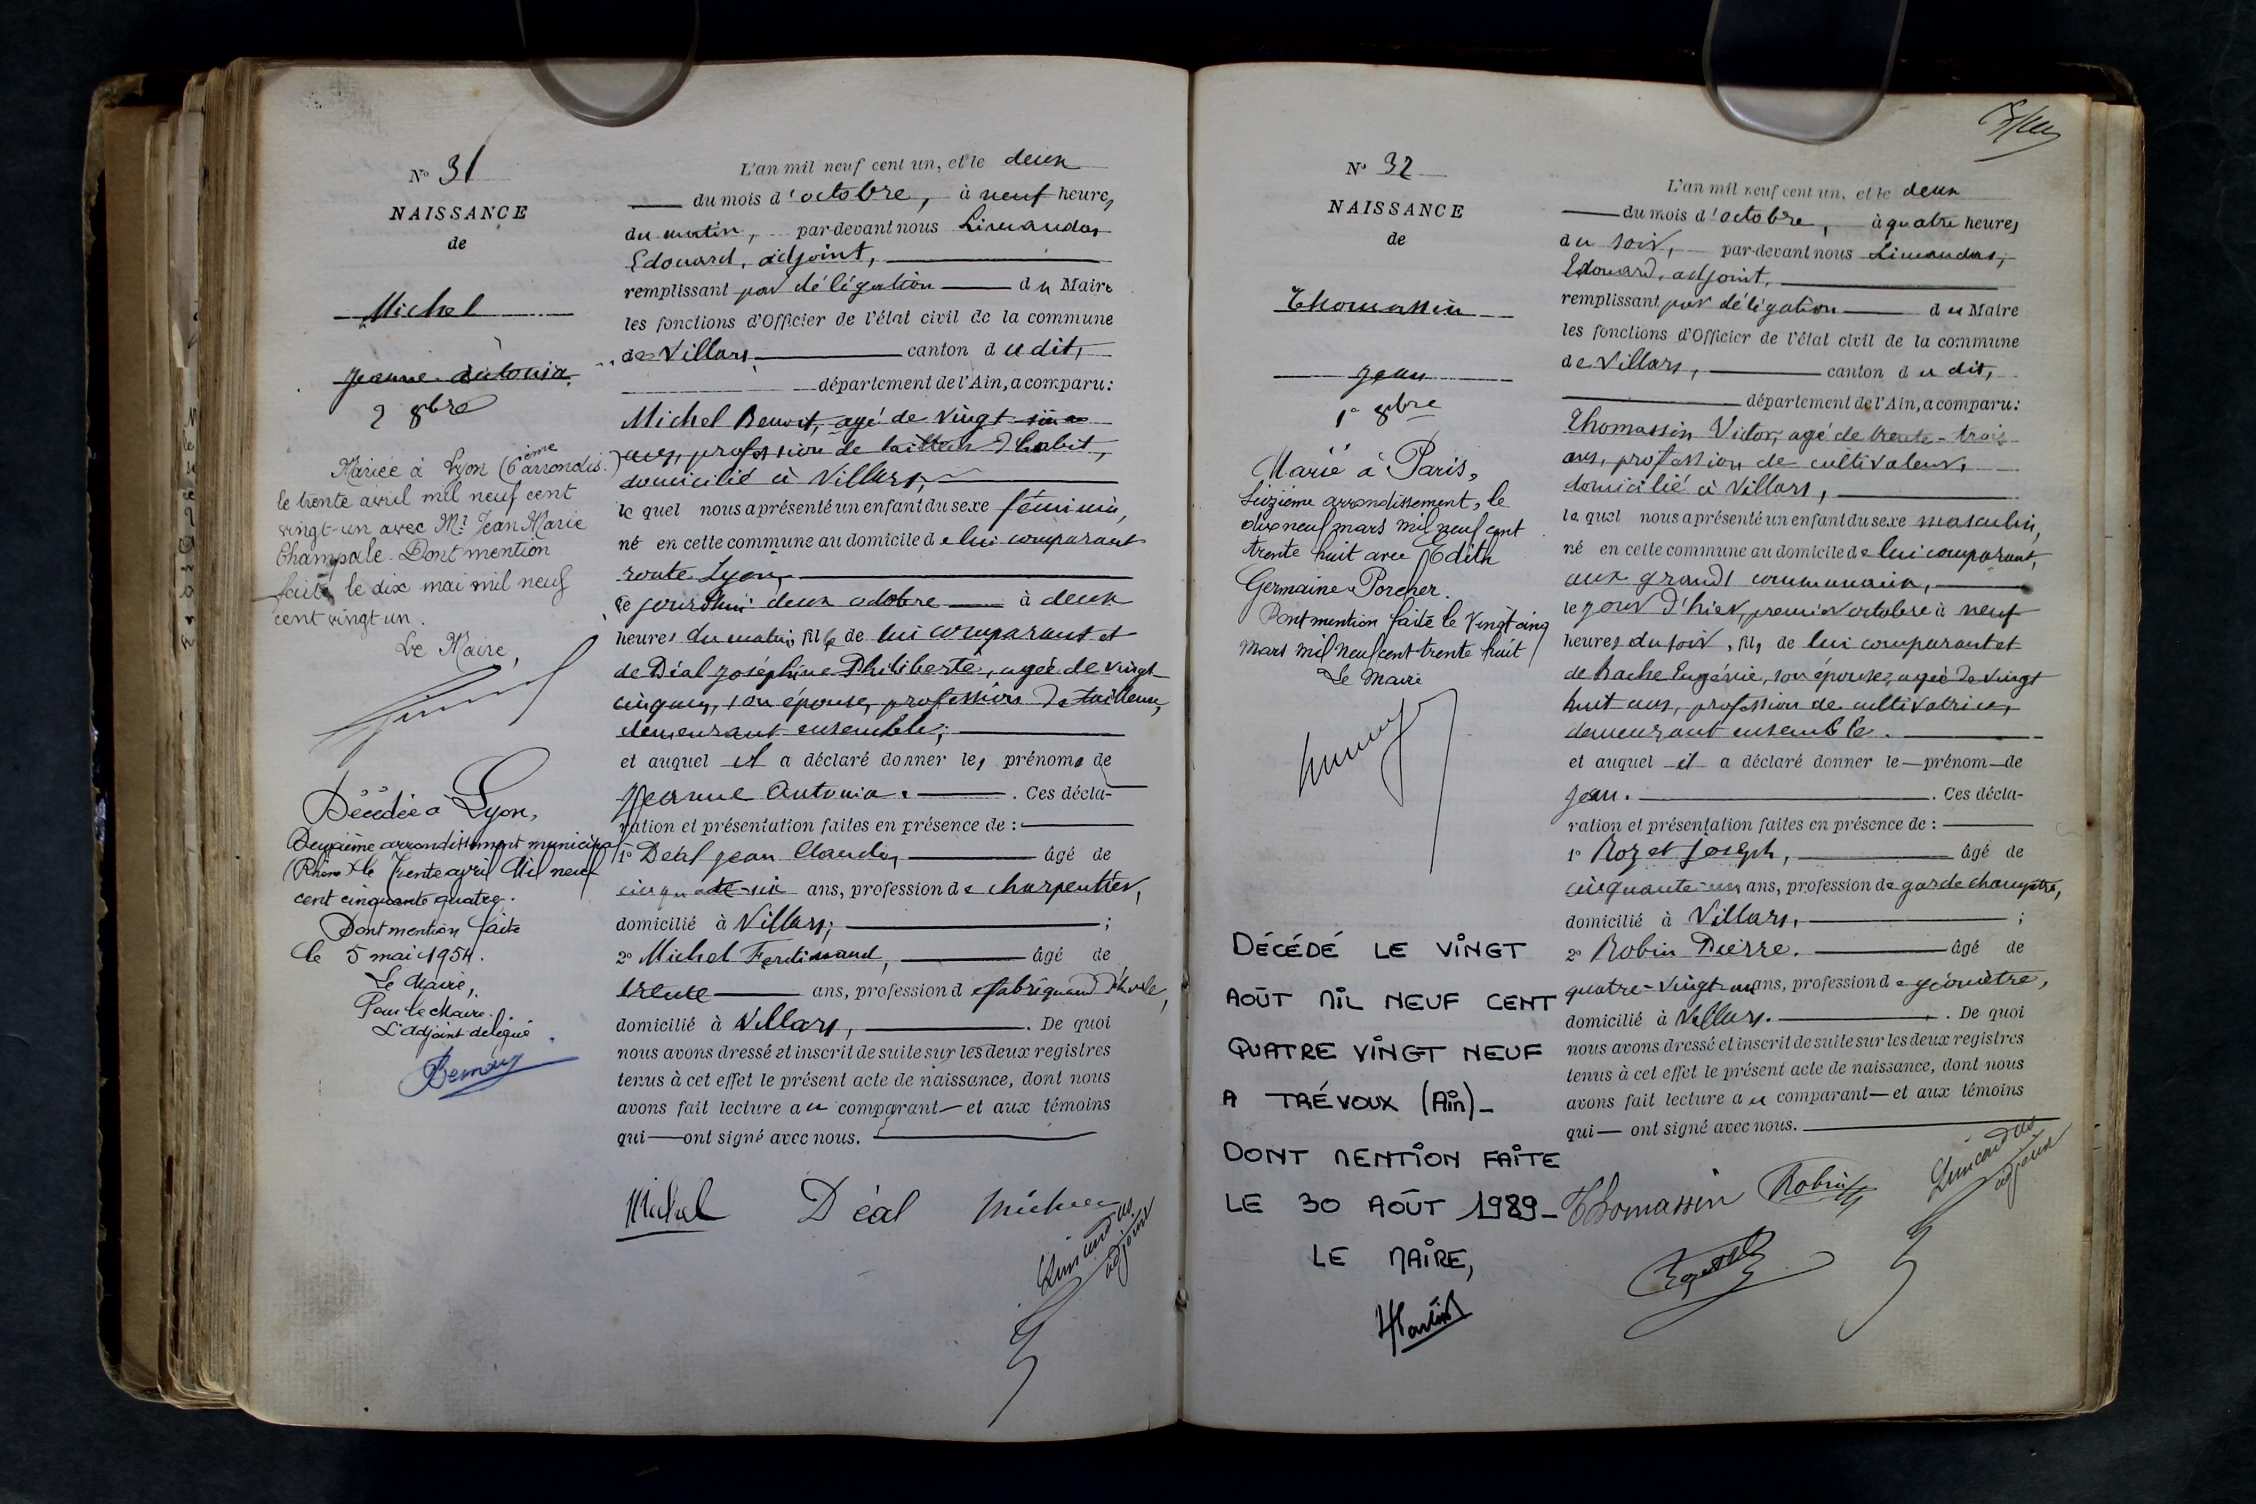 N° 31
NAISSANCE
de
Michel
Jeanne Antonia
2 8bre
Mariée à Lyon (6ème arrondis.)
le trente avril mil neuf cent
vingt-un avec Mr Jean Marie
Champale. Dont mention
faite le dix mai mil neuf
cent vingt un.
Le Maire,
Décédée à Lyon,
Deuxième arrondissement municipal
(Rhône) le trente avril Mil neuf
cent cinquante quatre.
Dont mention faite
le 5 mai 1954.
Le Maire,
Pour le Maire.
L'adjoint délégué
L'an mil neuf cent un, et le deux
du mois d'octobre, à neuf heures
du matin, par-devant nous Limandas
Edouard, adjoint,
remplissant par délégation du Maire
les fonctions d'Officier de l'état civil de la commune
de Villars canton du dit,
département de l'Ain, a comparu:
Michel Benoit, agé de vingt six
ans, profession de tailleur d'habit,
domicilié à Villars,
le quel nous a présenté un enfant du sexe féminin,
né en cette commune au domicile de lui comparant
route Lyon,
ce jourd'hui deux octobre à deux
heures du matin, fille de lui comparant et
de Déal Joséphine Philiberte, agée de vingt
cinq ans, son épouse, profession de tailleuse,
demeurant ensemble;
et auquel il a déclaré donner les prénoms de
Jeanne Antonia. . Ces décla-
ration et présentation faites en présence de :
1° Déal Jean Claude, âgé de
cinquante-six ans, profession de charpentier,
domicilié à Villars; ;
2° Michel Ferdinand, âgé de
trente ans, profession de fabriquant d'huile,
domicilié à Villars, . De quoi
nous avons dressé et inscrit de suite sur les deux registres
tenus à cet effet le présent acte de naissance, dont nous
avons fait lecture au comparant et aux témoins
qui ont signé avec nous.
Michel Déal Michel
Limandas
adjoint
N° 32
NAISSANCE
de
Thomassin
Jean
1er 8bre
Marié à Paris,
Seizième arrondissement, le
dix neuf mars mil neuf cent
trente huit avec Edith
Germaine Porcher.
Dont mention faite le vingt cinq
mars mil neuf cent trente huit
Le Maire
DÉCÉDÉ LE VINGT
AOÛT MIL NEUF CENT
QUATRE VINGT NEUF
A TRÉVOUX (Ain)_
DONT MENTION FAITE
LE 30 AOÛT 1989_
LE MAIRE,
L'an mil neuf cent un, et le deux
du mois d'octobre, à quatre heures
du soir, par-devant nous Limandas,
Edouard, adjoint,
remplissant par délégation du Maire
les fonctions d'Officier de l'état civil de la commune
de Villars, canton du dit,
département de l'Ain, a comparu:
Thomassin Victor, agé de trente-trois
ans, profession de cultivateur,
domicilié à Villars,
le quel nous a présenté un enfant du sexe masculin,
né en cette commune au domicile de lui comparant,
aux grands communaux,
le jour d'hier, premier octobre à neuf
heures du soir, fils de lui comparant et
de Eugénie, son épouse, agée de vingt
huit ans, profession de cultivatrice,
demeurant ensemble.
et auquel il a déclaré donner le prénom de
Jean. . Ces décla-
ration et présentation faites en présence de :
1° Rozet Joseph, âgé de
cinquante-un ans, profession de garde champêtre,
domicilié à Villars, ;
2° Robin Pierre. âgé de
quatre-vingt ans, profession de géomètre,
domicilié à Villars. . De quoi
nous avons dressé et inscrit de suite sur les deux registres
tenus à cet effet le présent acte de naissance, dont nous
avons fait lecture au comparant et aux témoins
qui ont signé avec nous.
Thomassin Robin
Limandas
adjoint